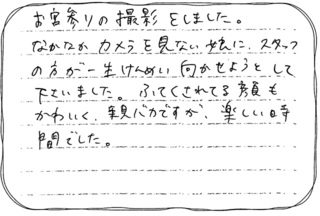 お宮参りの撮影をしました。
なかなかカメラを見ない娘に、スタッフ
の方が一生けんめい向かせようとして
下さいました。ふてくされてる顔も
かわいく、親バカですが、楽しい時
間でした。